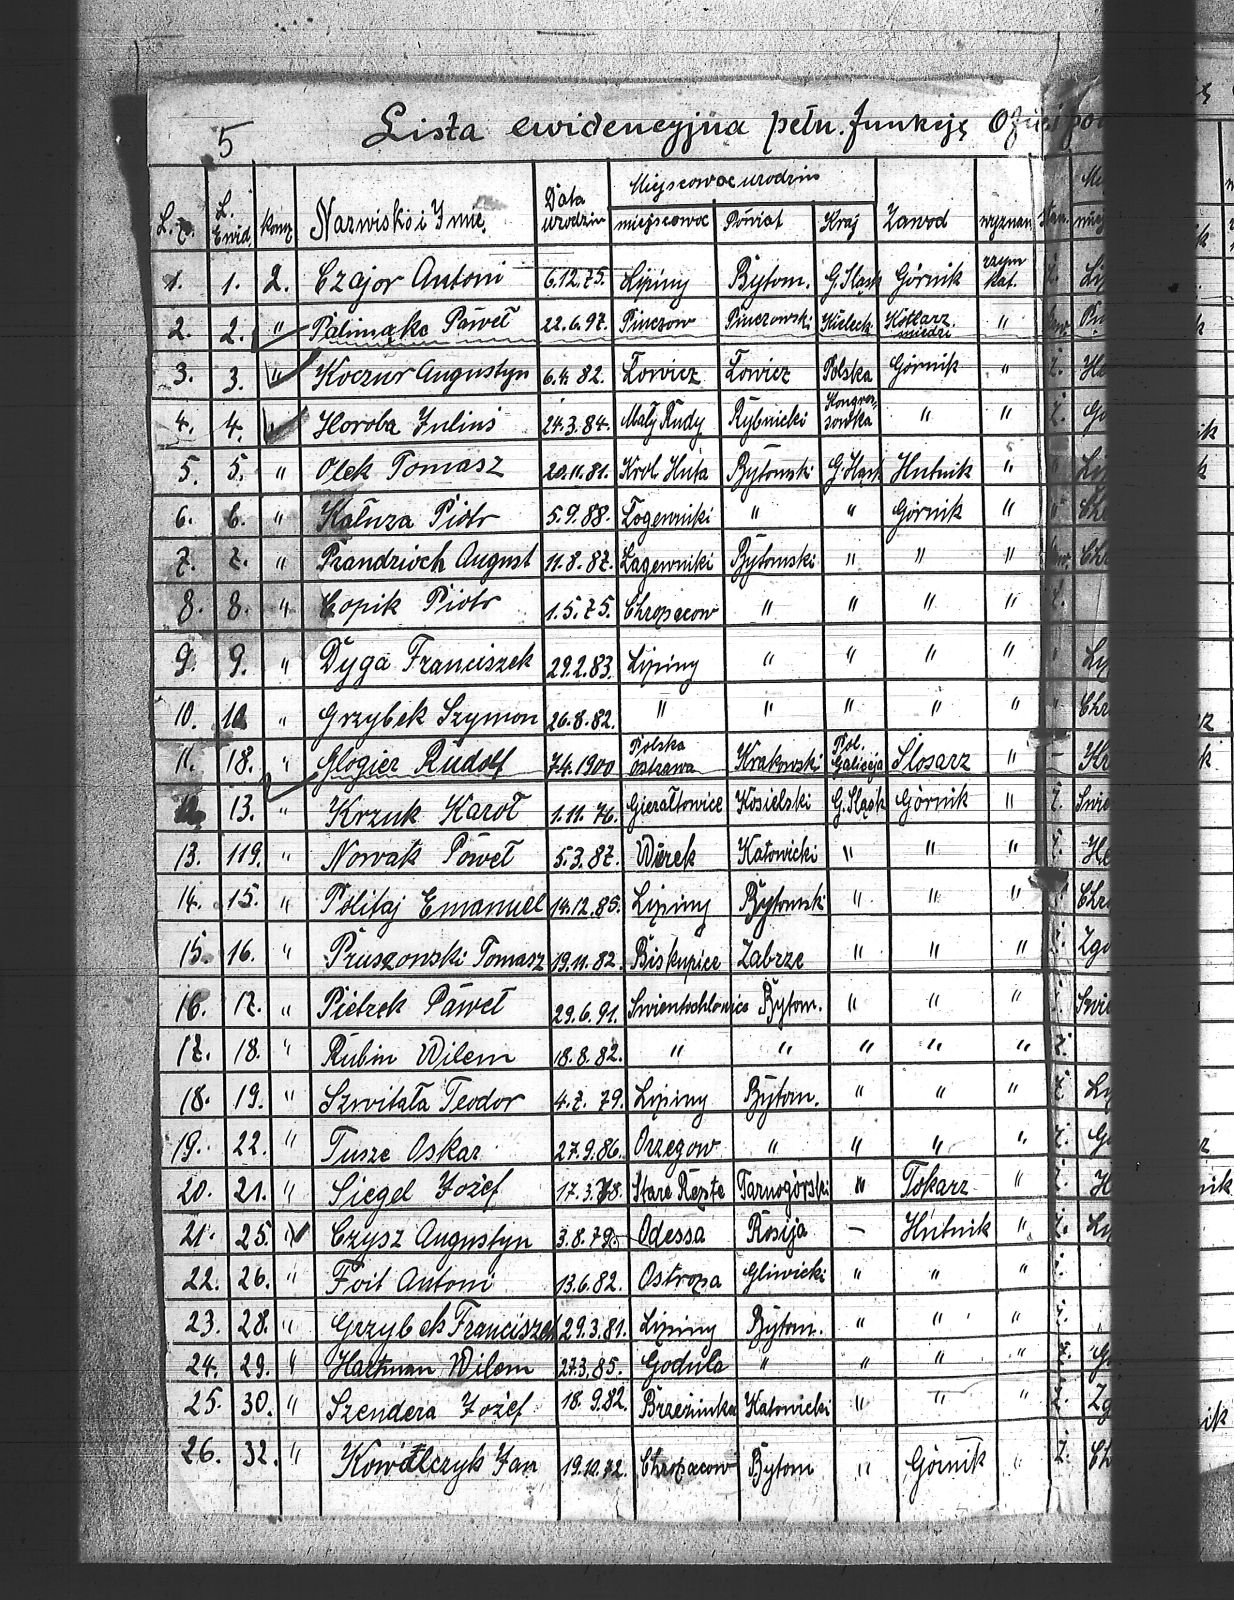 5
Lista ewidencyjna pełn. funkcję
Miejscowość urodzin
L. z. L. Ewid. Komp Nazwisko i Imię Data urodzin miejscowoć Powiat Kraj Zawod wyznan. stan.
1. 1. 2. Czajor Antoni 6.12.75. Lipiny Bytom. G. Sląsk Górnik rzym kat. ż.
2. 2. " Palimąka Paweł 22.6.97. Pinczow Pinczowski Kieleck Kotlarz miedzi "
3. 3. " Koczur Augustyn 6.4.82. Łowicz Łowicz Polska Górnik " ż.
4. 4. " Horoba Juliuś 24.3.84. Mały Rudy Rybnicki Kongresowka " " ż.
5. 5. " Olek Tomasz 20.11.81. Krol. Huta Bytomski G. Sląsk Hutnik " "
6. 6. " Kałuza Piotr 5.9.88. Łogewniki " " Górnik " "
7. 7. " Prandzioch August 11.8.87. Lagewniki Bytomski " " "
8. 8. " Copik Piotr 1.5.75. Chropacow " " " " ż.
9. 9. " Dyga Franciszek 29.2.83. Lipiny " " " " "
10. 10 " Grzybek Szymon 26.8.82. " " " " " "
11. 18. " Glogier Rudolf 7.4.1900 Polska Ostrawa Krakowski Pol. Galicija Slosarz " –
12. 13. " Krzuk Karoł 1.11.76. Gierałtowice Kosielski G. Sląsk Górnik " ż.
13. 119. " Nowak Paweł 5.3.87. Wirek Katowicki " " " ż.
14. 15. " Politaj Emanuel 14.12.85. Lipiny Bytomski " " " ż.
15. 16. " Pruszowski Tomasz 19.11.82. Biskupice Zabrze " " " ż.
16. 17. " Pietrek Paweł 29.6.91. Swientochlowice Bytom. " " " ż.
17. 18. " Rubin Wilem 18.8.82. " " " " " ż.
18. 19. " Szwitała Teodor 4.7.79. Lipiny Bytom. " " " ż.
19. 22. " Tusze Oskar 27.9.86. Orzegow " " " " ż.
20. 21. " Siegel Jożef 17.3.78. Stare Repte Tarnogórski " Tokarz " ż.
21. 25. " Czysz Augustyn 3.8.79 Odessa Rosija – Hutnik " ż.
22. 26. " Foit Antoni 13.6.82. Ostropa Gliwicki " " " ż.
23. 28. " Grzybek Franciszek 29.3.81. Lipiny Bytom. " " " ż.
24. 29. " Hartman Wilem 27.3.85. Godula " " " " ż.
25. 30. " Szendera Jożef 18.9.82. Brzezinka Katowicki " " " ż.
26. 32. " Kowalczyk Jan 19.10.72. Chropacow Bytom " Górnik " ż.